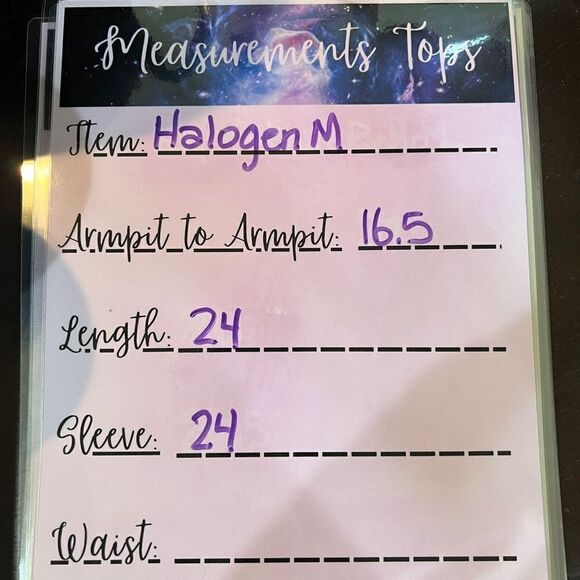 Measurements Tops
Item: Halogen M
Armpit to Armpit: 16.5
Length: 24
Sleeve: 24
Waist: